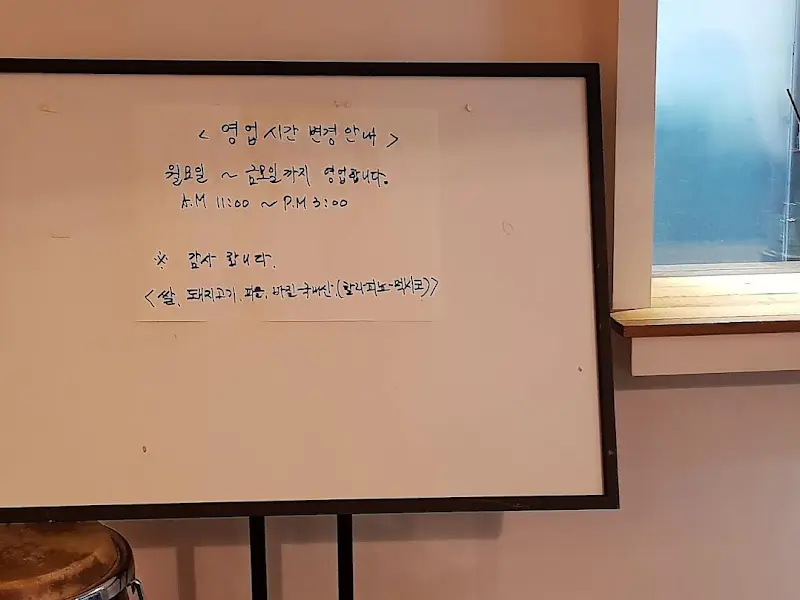 < 영업 시간 변경 안내 >
월요일 ~ 금요일까지 영업합니다.
A.M 11:00 ~ P.M 3:00
※ 감사 합니다.
<쌀, 돼지고기, 파슬, 바질-국내산.(할라피뇨-멕시코)>